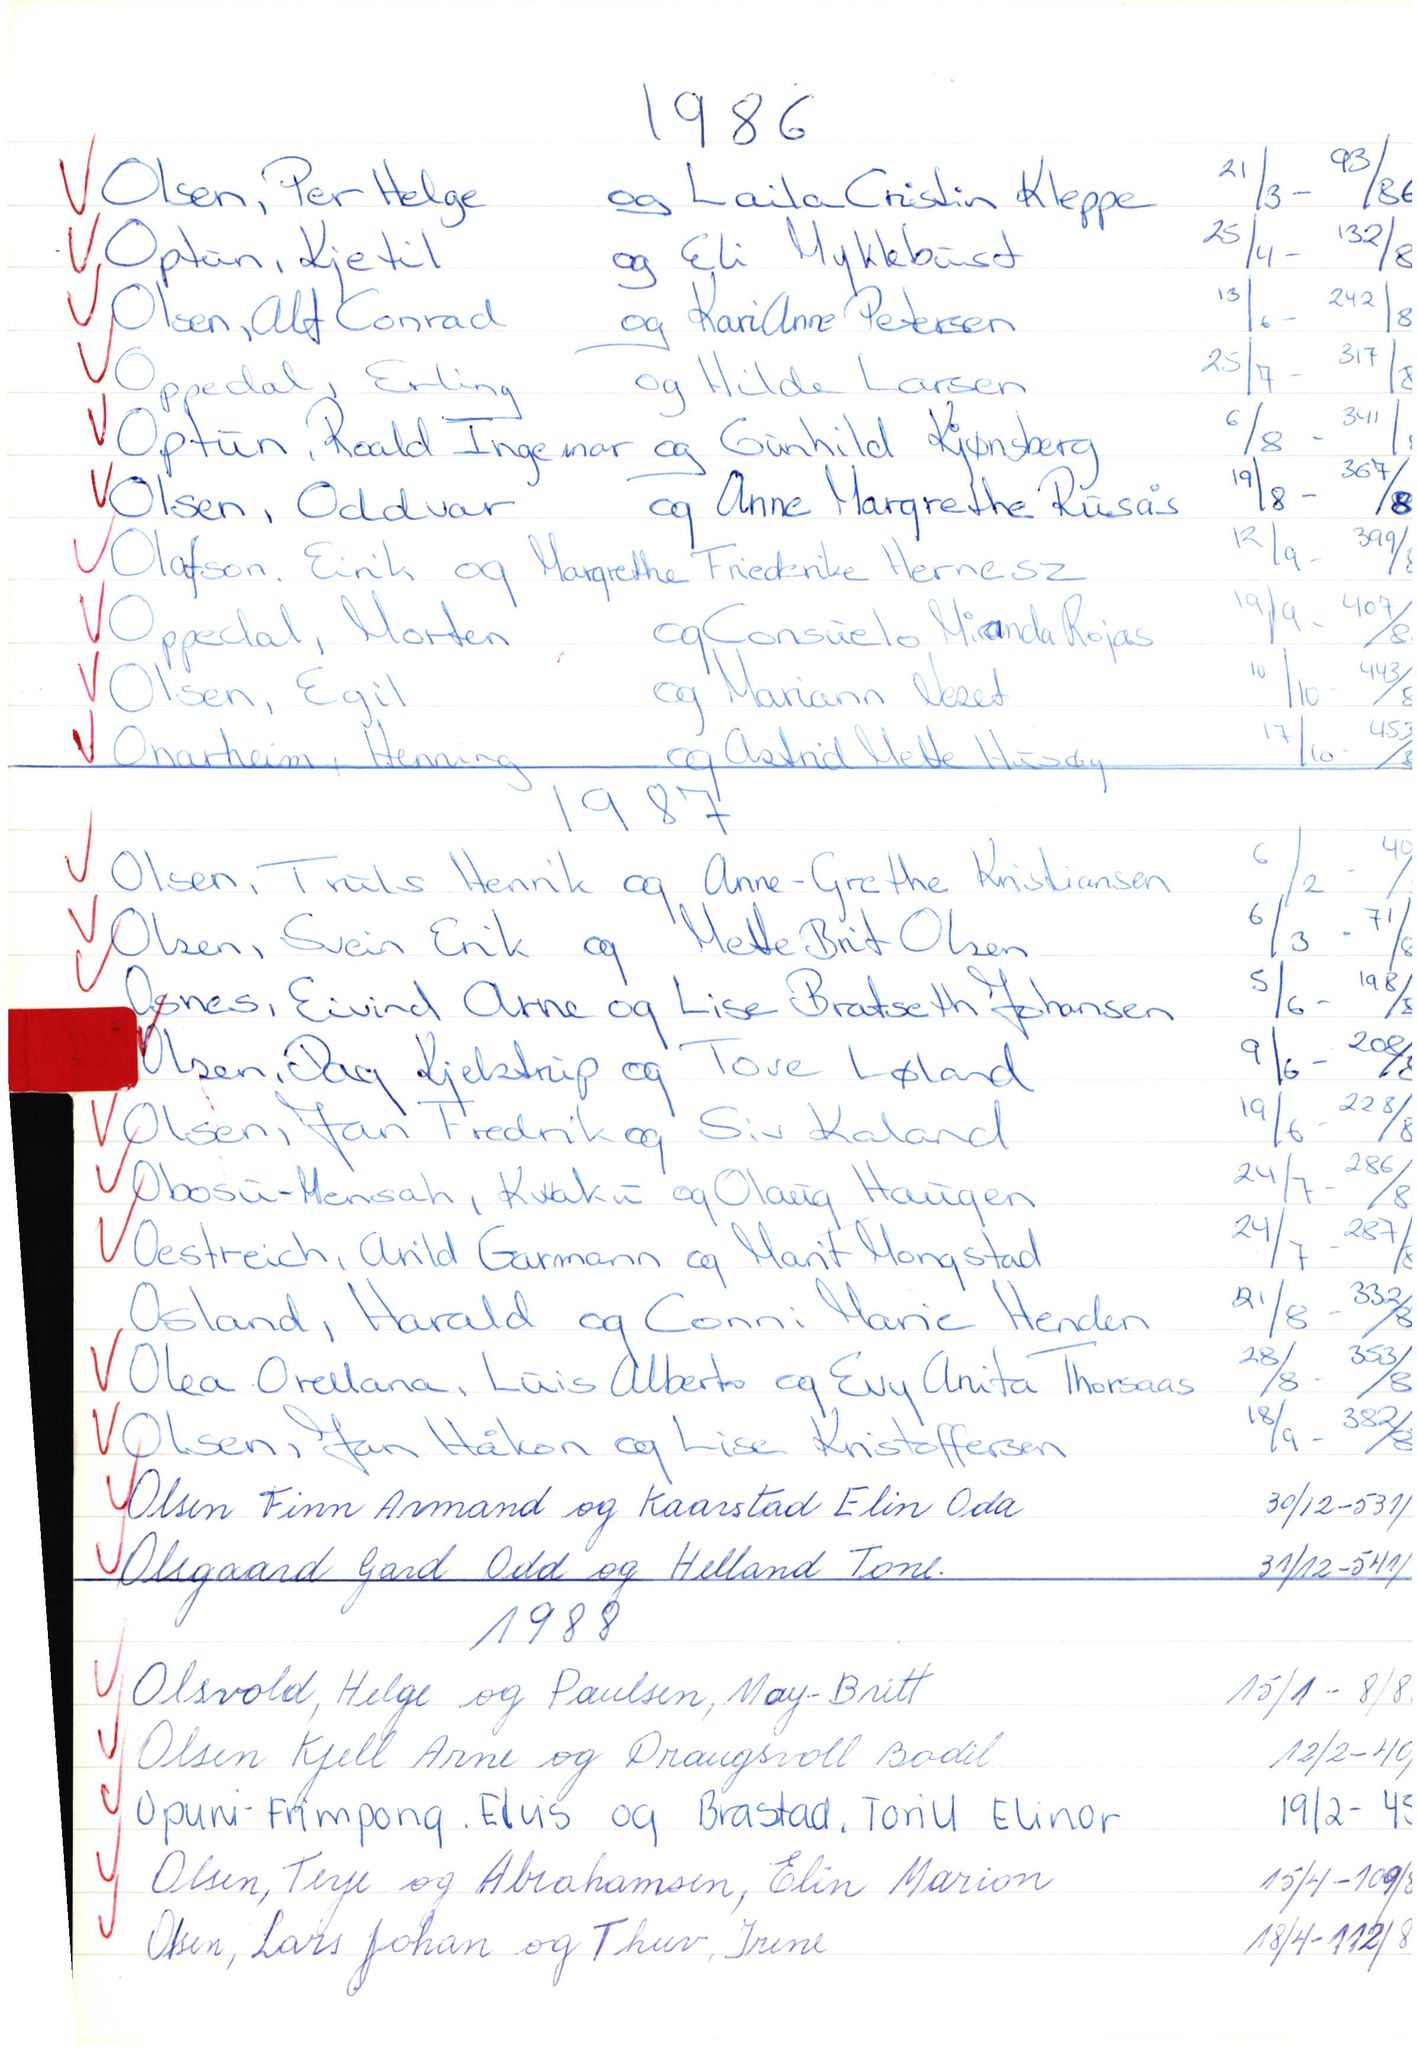 1986
Olsen, Per Helge og Laila Cristin Kleppe 21/3 - 93/86
Optun, Kjetil og Eli Myklebust 25/4 - 132/8
Olsen, Alf Conrad og Kari Anne Petersen 13/6 - 242/8
Oppedal, Erling og Hilde Larsen 25/7 - 317/8
Optun, Roald Ingemar og Gunhild Kjønsberg 6/8 - 341/8
Olsen, Oddvar og Anne Margrethe Rusås 19/8 - 367/8
Olafson. Eirik og Margrethe Friederike Hernesz 12/9 - 399/8
Oppedal, Morten og Consuelo Miranda Rojas 19/9 - 407/8
Olsen, Egil og Mariann 10/10 - 443/8
Onarheim, Henning og Astrid Mette Husøy 17/10 - 453/8
1987
Olsen, Truls Henrik og Anne-Grethe Kristiansen 6/2 - 40/
Olsen, Svein Erik og Mette Brit Olsen 6/3 - 71/8
Osnes, Eivind Arne og Lise Bratseth Johansen 5/6 - 198/8
Olsen, Dag Kjelstrup og Tove Løland 9/6 - 208/8
Olsen, Jan Fredrik og Siv Kaland 19/6 - 228/8
Obosu-Mensah, Kwaku og Olaug Haugen 24/7 - 286/8
Oestreich, Arild Garmann og Marit Mongstad 24/7 - 287/8
Osland, Harald og Conni Marie Henden 21/8 - 332/8
Olea Orellana, Luis Alberto og Evy Anita Thorsaas 28/8 - 353/8
Olsen, Jan Håkon og Lise Kristoffersen 18/9 - 382/8
Olsen Finn Armand og Kaarstad Elin Oda 30/12-531/
Olsgaard Gard Odd og Helland Tone. 31/12-541/
1988
Olsvold, Helge og Paulsen, May-Britt 15/1 - 8/8
Olsen Kjell Arne og Draugsvoll Bodil 12/2-40/
Opuni-Frimpong. Elvis og Brastad. Torill Elinor 19/2-45
Olsen, Terje og Abrahamsen, Elin Marion 15/4-109/8
Olsen, Lars Johan og Thuv, Irene 18/4-112/8